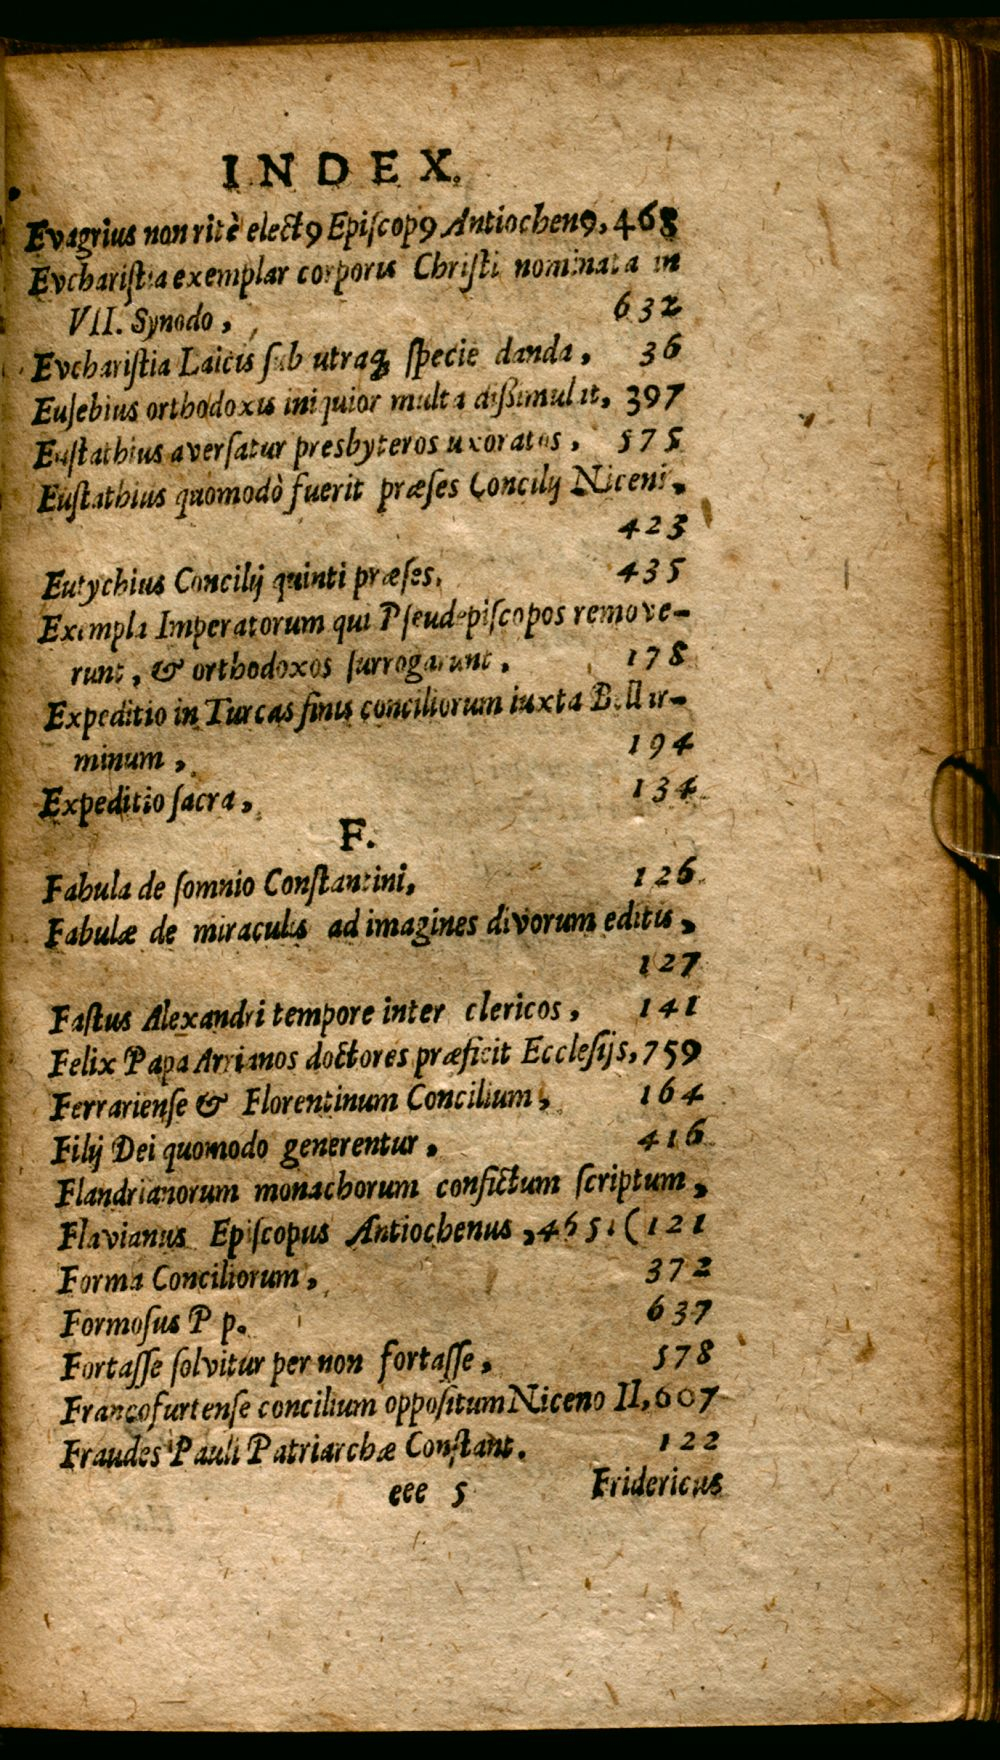 INDEX.
Evagrius non ritè elect9 Episcop9 Antiochen9, 468
Evcharistia exemplar corporis Christi nominata in
VII. Synodo, 632
Evcharistia Laicis sub utraq; specie danda, 36
Eusebius orthodoxis iniquior multa dißimulat, 397
Eustathius aversatur presbyteros uxoratos, 575
Eustathius quomodò fuerit præses Concilij Niceni,
423
Eutychius Concilij quinti præses. 435
Exempla Imperatorum qui Pseudepiscopos remove-
runt, & orthodoxos surrogarunt. 178
Expeditio in Turcas finis conciliorum iuxta Bellar-
minum, 194
Expeditio sacra, 134
F.
Fabula de somnio Constantini, 126
Fabulæ de miraculis ad imagines divorum editis,
127
Fastus Alexandri tempore inter clericos, 141
Felix Papa Arrianos doctores præficit Ecclesijs, 759
Ferrariense & Florentinum Concilium, 164
Filij Dei quomodo generentur, 416
Flandrianorum monachorum confictum scriptum,
Flavianus Episcopus Antiochenus, 465. (121
Forma Conciliorum, 372
Formosus P p. 637
Fortasse solvitur per non fortasse, 578
Francofurtense concilium oppositum Niceno II, 607
Fraudes Pauli Patriarchæ Constant. 122
eee 5 Fridericus